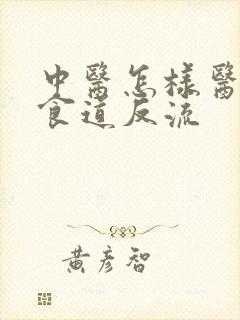 中醫怎樣醫
食道反流
黃彥智